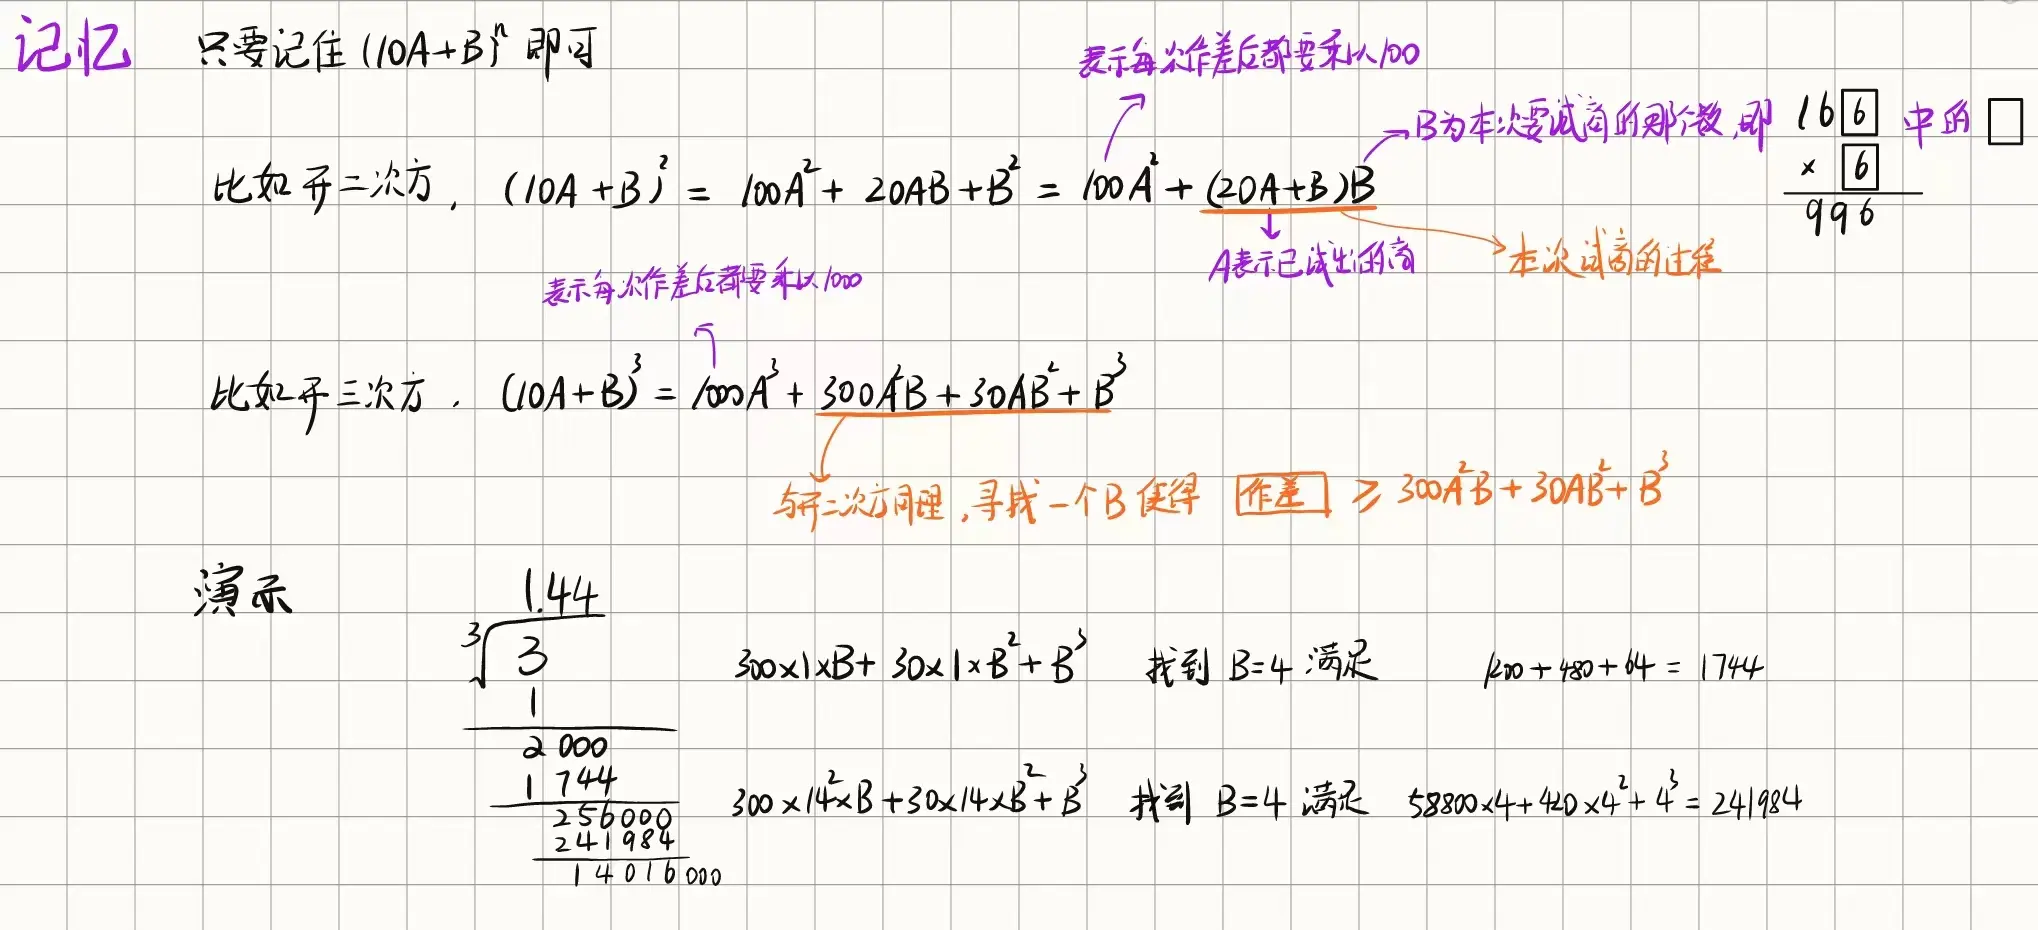 记忆 只要记住 (10A+B)ⁿ 即可
表示每次作差后都要乘以100
B为本次要试商的那个数,即 16[6] 中的 □
× [6]
996
比如开二次方, (10A+B)² = 100A² + 20AB + B² = 100A² + (20A+B)B
A表示已试出的商
本次试商的过程
表示每次作差后都要乘以1000
比如开三次方. (10A+B)³ = 1000A³ + 300A²B + 30AB² + B³
与开二次方同理,寻找一个B使得 作差 ≥ 300A²B + 30AB² + B³
演示
1.44
³√3
1
2 000
1 744
256000
241984
14016 000
300×1×B + 30×1×B² + B³ 找到 B=4 满足 1200+480+64 = 1744
300×14²×B + 30×14×B² + B³ 找到 B=4 满足 58800×4+420×4²+4³ = 241984